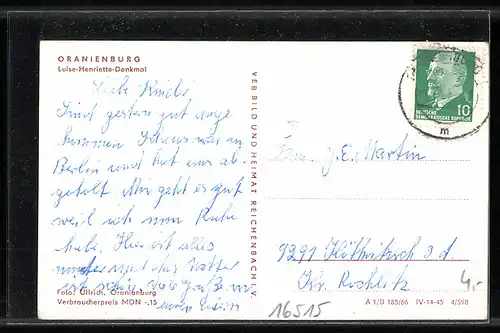 ORANIENBURG
Luise-Henriette-Denkmal
Sind gestern gut ange
kommen Klaus war in
Berlin und hat uns ab-
geholt Mir geht es gut
weil ich nun Ruhe
habe. Hier ist alles
und das Wetter
ist
Foto: Ullrich, Oranienburg
Verbraucherpreis MDN -,15
VEB BILD UND HEIMAT REICHENBACH I. V.
DEUTSCHE
DEMOKRATISCHE REPUBLIK
10
m
J. E. Martin
9291
Kr. Rochlitz
4,-
16515
A 1/B 185/66 IV-14-45 4/598